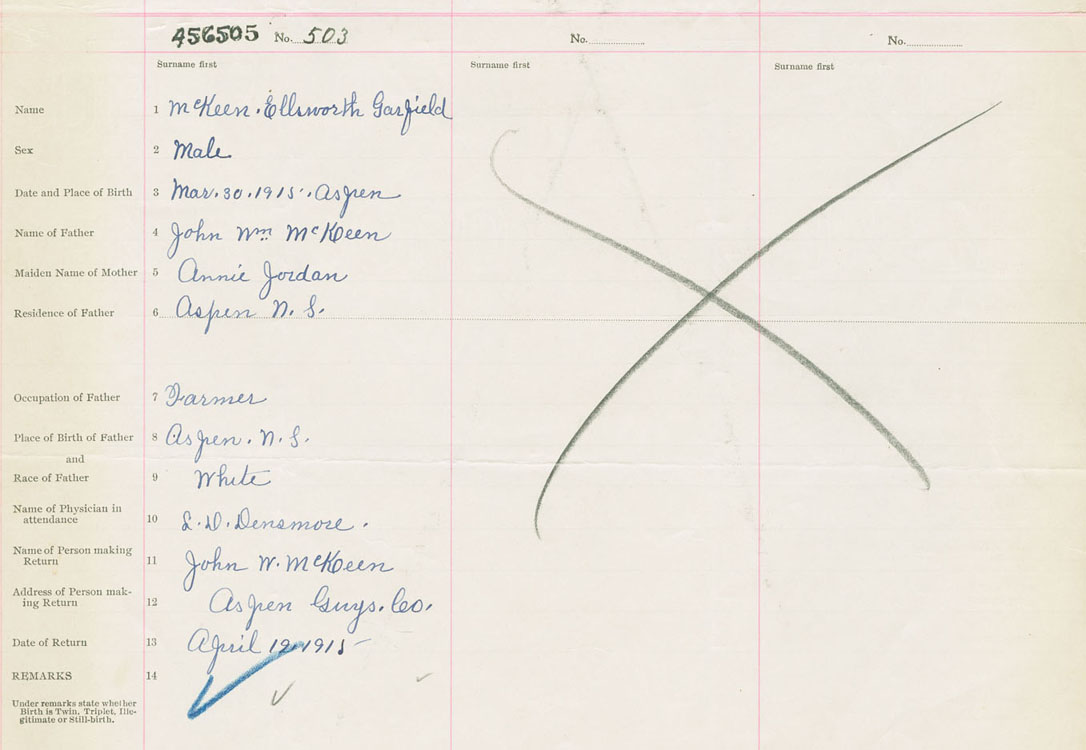 456505 No. 503 No. No.
Surname first Surname first Surname first
Name 1 McKeen. Ellsworth Garfield
Sex 2 Male
Date and Place of Birth 3 Mar. 30. 1915. Aspen
Name of Father 4 John Wm McKeen
Maiden Name of Mother 5 Annie Jordan
Residence of Father 6 Aspen N. S.
Occupation of Father 7 Farmer
Place of Birth of Father 8 Aspen. N. S.
and
Race of Father 9 White
Name of Physician in
attendance 10 L. D. Densmore.
Name of Person making
Return 11 John W. McKeen
Address of Person mak-
ing Return 12 Aspen Guys. Co.
Date of Return 13 April 12, 1915
REMARKS 14
Under remarks state whether
Birth is Twin, Triplet, Ille-
gitimate or Still-birth.